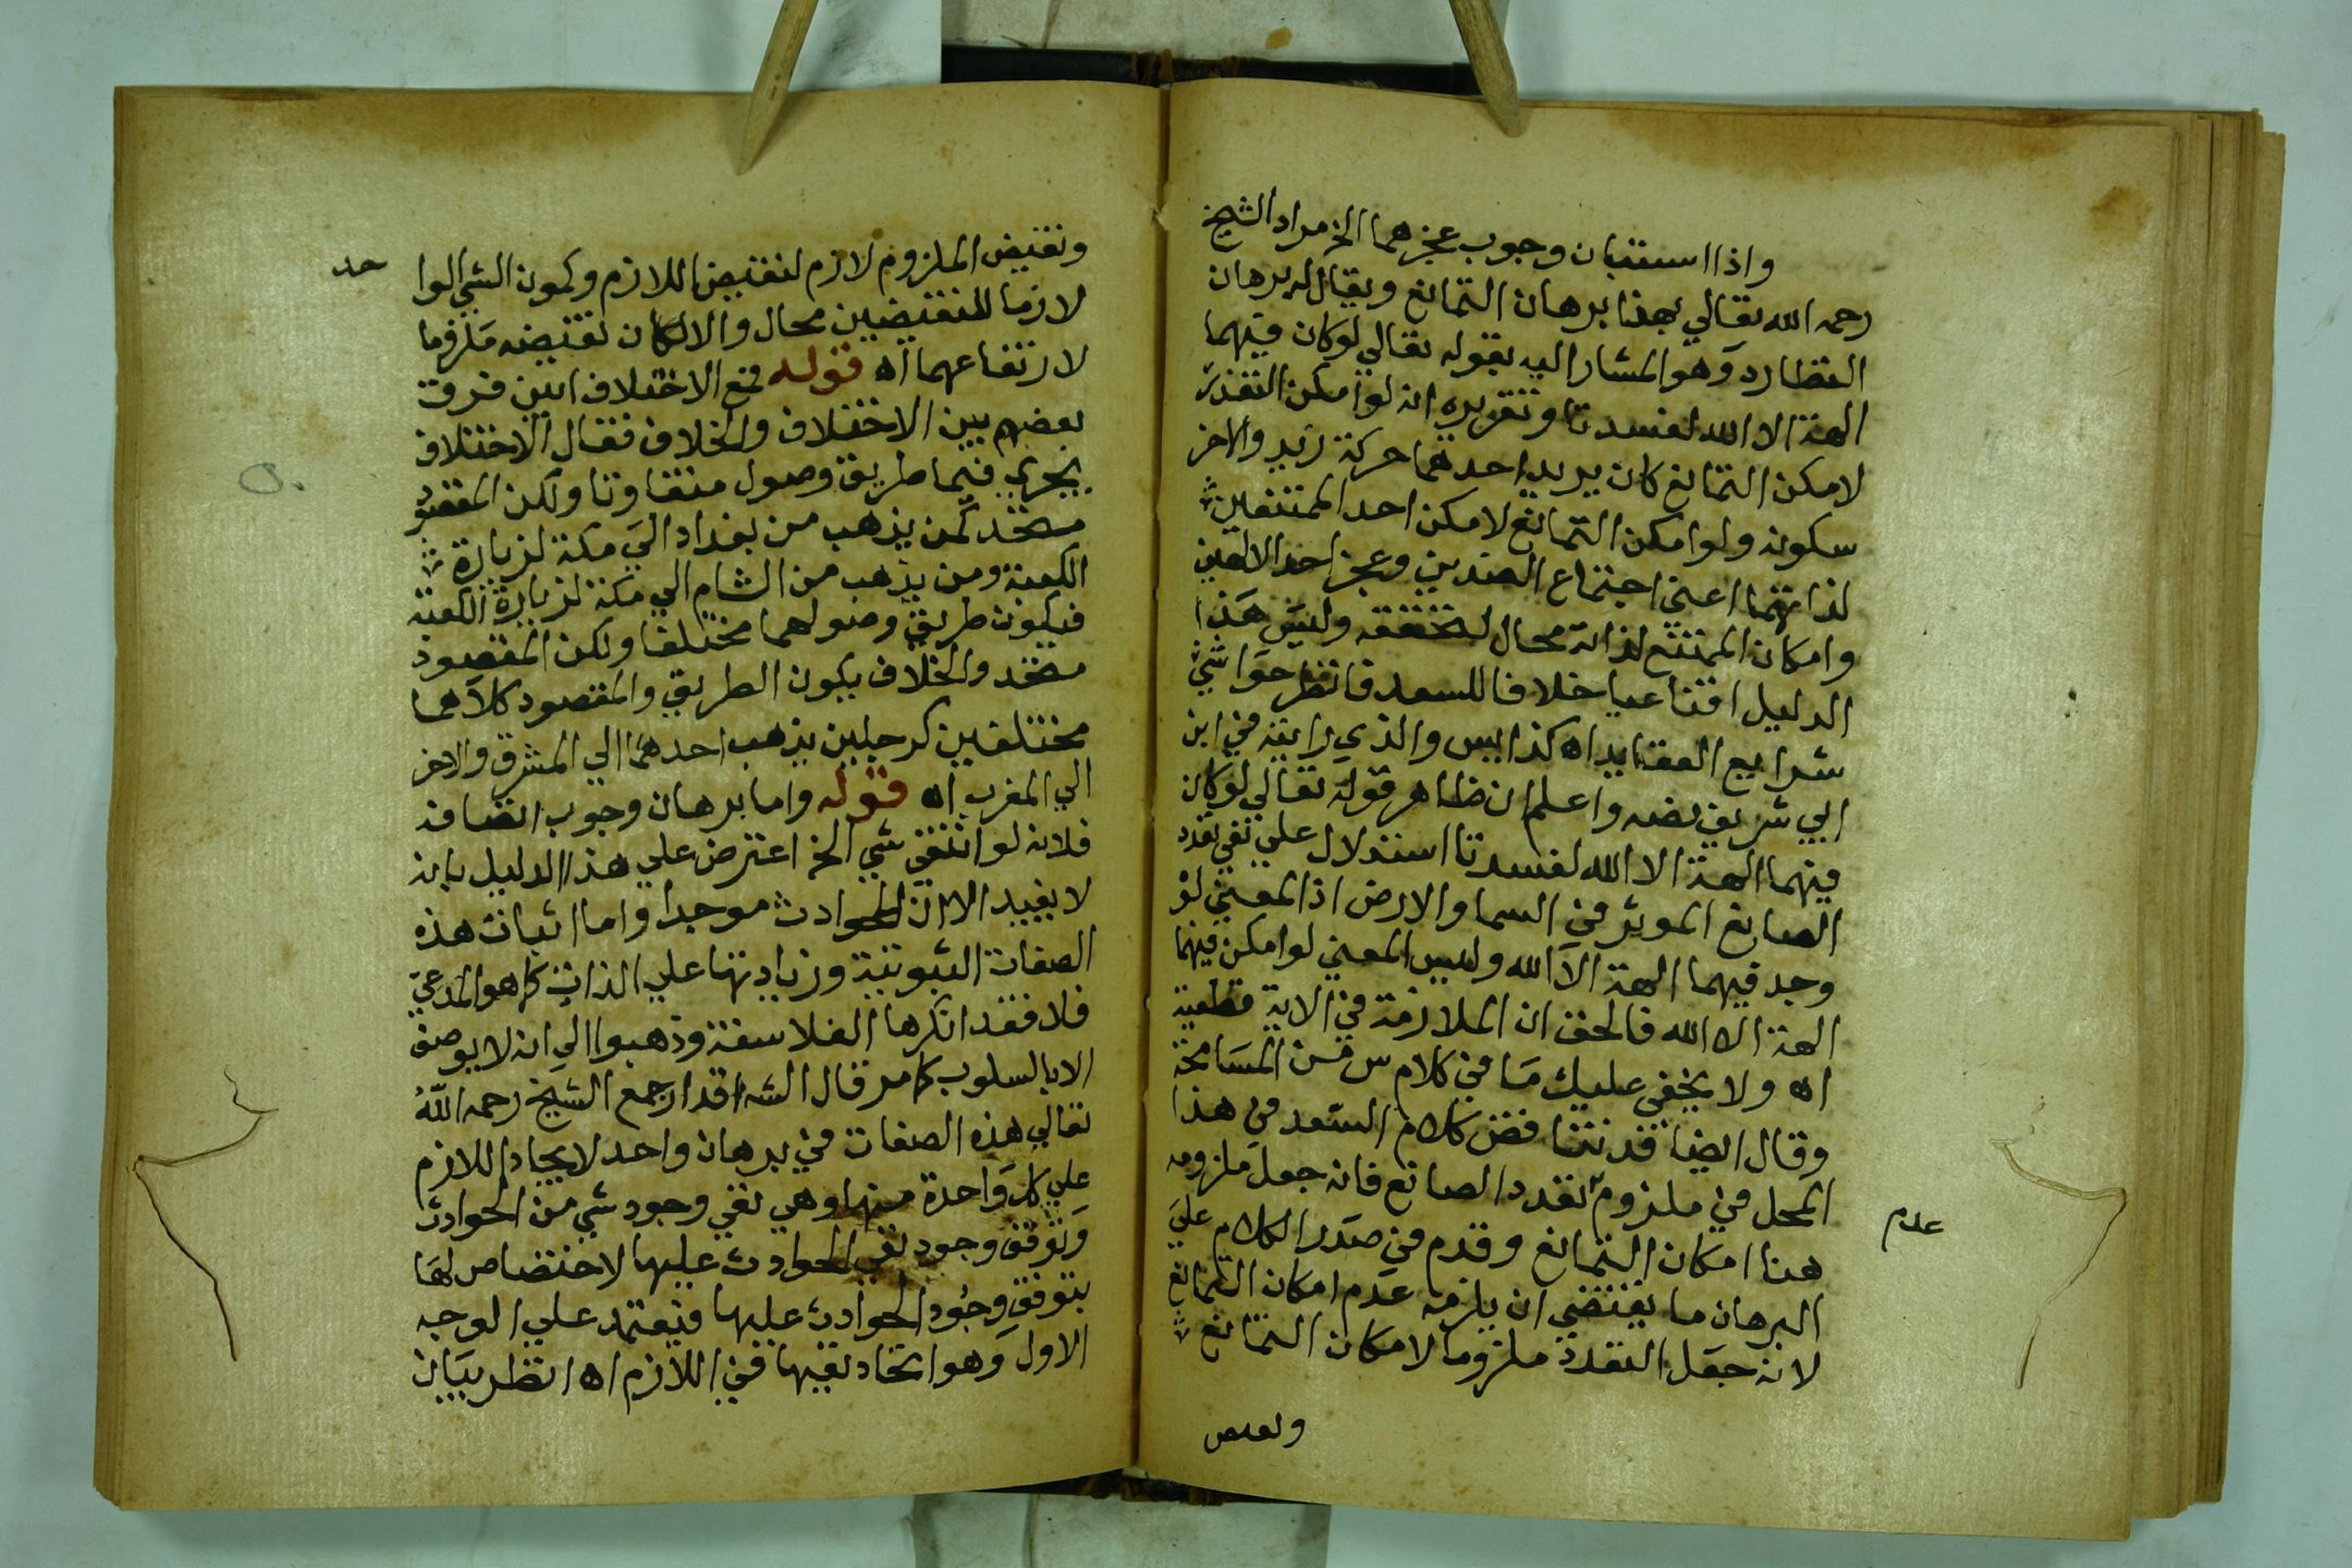 واذا استبان وجوب عجزهما الخ مراد الشيخ
رحمه الله تعالي بهذا برهان التمانع ويقال له برهان
التطارد وهو المشار اليه بقوله تعالي لو كان فيهما
الهة الا الله لفسدتا وتقريره انه لو امكن التعدد
لامكن التمانع كان يريد احدهما حركة زيد والاخر
سكونه ولو امكن التمانع لامكن احد الممتنعين
لذاتهما اعني اجتماع الضدين وعجز احد الالهين
وامكان الممتنع لذاته محال لتحققه وليس هذا
الدليل اقناعيا خلافا للسعد فانظر حواشي
شرايع العقايد اه كذا ايس والذي رايته في ابن
ابي شريف نصه واعلم ان ظاهر قوله تعالي لو كان
فيهما الهة الا الله لفسدتا استدلال علي نفي تعدد
الصانع الموثر في السما والارض اذ المعني لو
وجد فيهما الهة الا الله وليس المعني لو امكن فيهما
الهة الا الله فالحق ان الملازمة في الاية قطعية
اه ولا يخفي عليك ما في كلام س من المسامحة
وقال ايضا قد تناقض كلام السعد في هذا
المحل في ملزوم تعدد الصانع فانه جعل ملزومه
هنا امكان التمانع وقدم في صدر الكلام علي
عدم
البرهان ما يقتضي ان يلزمه عدم امكان التمانع
لانه جعل التعدد ملزوما لامكان التمانع
ونقيض
ونقيض الملزوم لازم لنقيض اللازم وكون الشي الوا
حد
لازما للنقيضين محال والا لكان نقيضه ملزوما
لارتفاعهما اه قوله مع الاختلاف البين فرق
بعضهم بين الاختلاف والخلاف فقال الاختلاف
يجري فيما طريق وصول متفاوتا ولكن المقصود
متحد كمن يذهب من بغداد الي مكة لزيارة
الكعبة ومن يذهب من الشام الي مكة لزيارة الكعبة
فيكون طريق وصولهما مختلفا ولكن المقصود
متحد والخلاف يكون الطريق والمقصود كلاهما
مختلفين كرجلين يذهب احدهما الي المشرق والاخر
الي المغرب اه قوله واما برهان وجوب اتصافه
فلانه لو انتفي شي الخ اعترض علي هذا الدليل بانه
لا يفيد الا ان للحوادث موجدا واما اثبات هذه
الصفات الثبوتية وزيادتها علي الذات كما هو المدعي
فلا فقد انكرها الفلاسفة وذهبوا الي انه لا يوصف
الا بالسلوب كما مر قال الشه قد جمع الشيخ رحمه الله
تعالي هذه الصفات في برهان واحد لايجاد اللازم
علي كل واحدة منها وهي نفي وجود شي من الحوادث
وتوقف وجود نفي الحوادث عليها لاختصاص لها
بتوقف وجود الحوادث عليها فيعتمد علي الوجه
الاول وهو اتحاد نفيها في اللازم اه انظر بيان